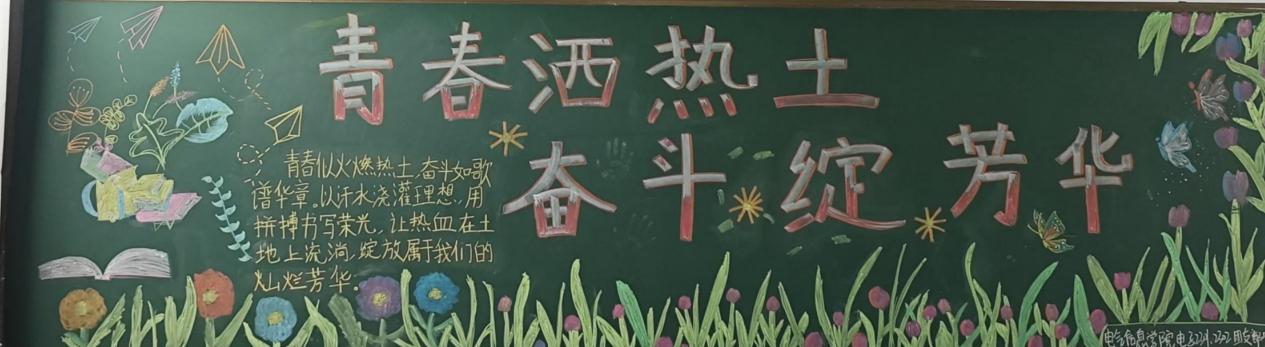 青春洒热土
奋斗绽芳华
青春似火燃热土,奋斗如歌
谱华章。以汗水浇灌理想,用
拼搏书写荣光,让热血在土
地上流淌,绽放属于我们的
灿烂芳华。